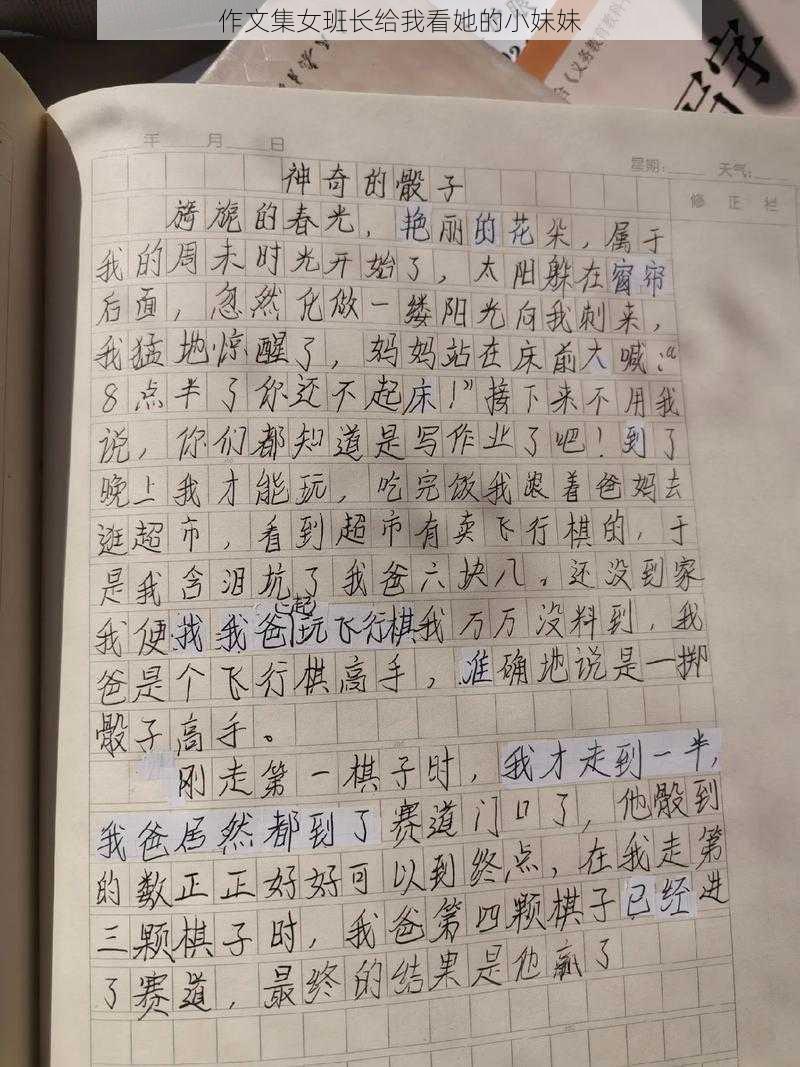 作文集女班长给我看她的小妹妹
写字
年 月 日
星期: 天气:
修正栏
神奇的骰子
旖旎的春光，艳丽的花朵，属于
我的周末时光开始了，太阳躲在窗帘
后面，忽然化做一缕阳光向我刺来，
我猛地惊醒了，妈妈站在床前大喊:“
8点半了你还不起床!”接下来不用我
说，你们都知道是写作业了吧!到了
晚上我才能玩，吃完饭我跟着爸妈去
逛超市，看到超市有卖飞行棋的，于
是我含泪坑了我爸六块八。还没到家
我便找我爸(一起)玩飞行棋我万万没料到，我
爸是个飞行棋高手，准确地说是一掷
骰子高手。
刚走第一棋子时，我才走到一半，
我爸居然都到了赛道门口了，他骰到
的数正正好好可以到终点，在我走第
三颗棋子时，我爸第四颗棋子已经进
了赛道，最终的结果是他赢了